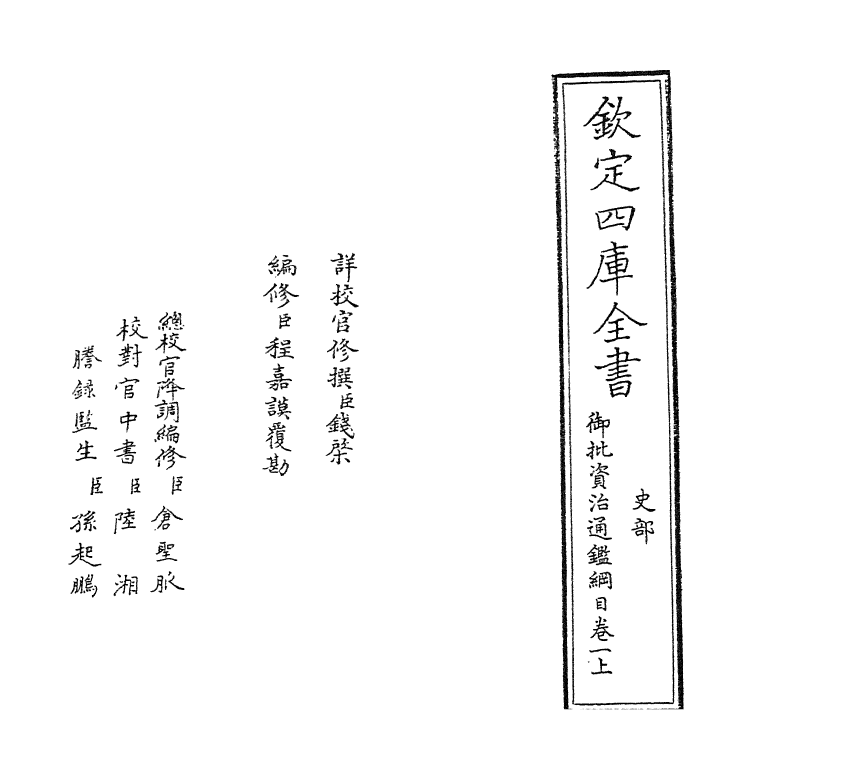 欽定四庫全書
史部
御批資治通鑑綱目卷一上
詳校官修撰臣錢棨
編修臣程嘉謨覆勘
總校官降調編修臣倉聖脈
校對官中書臣陸湘
謄錄監生臣孫起鵬